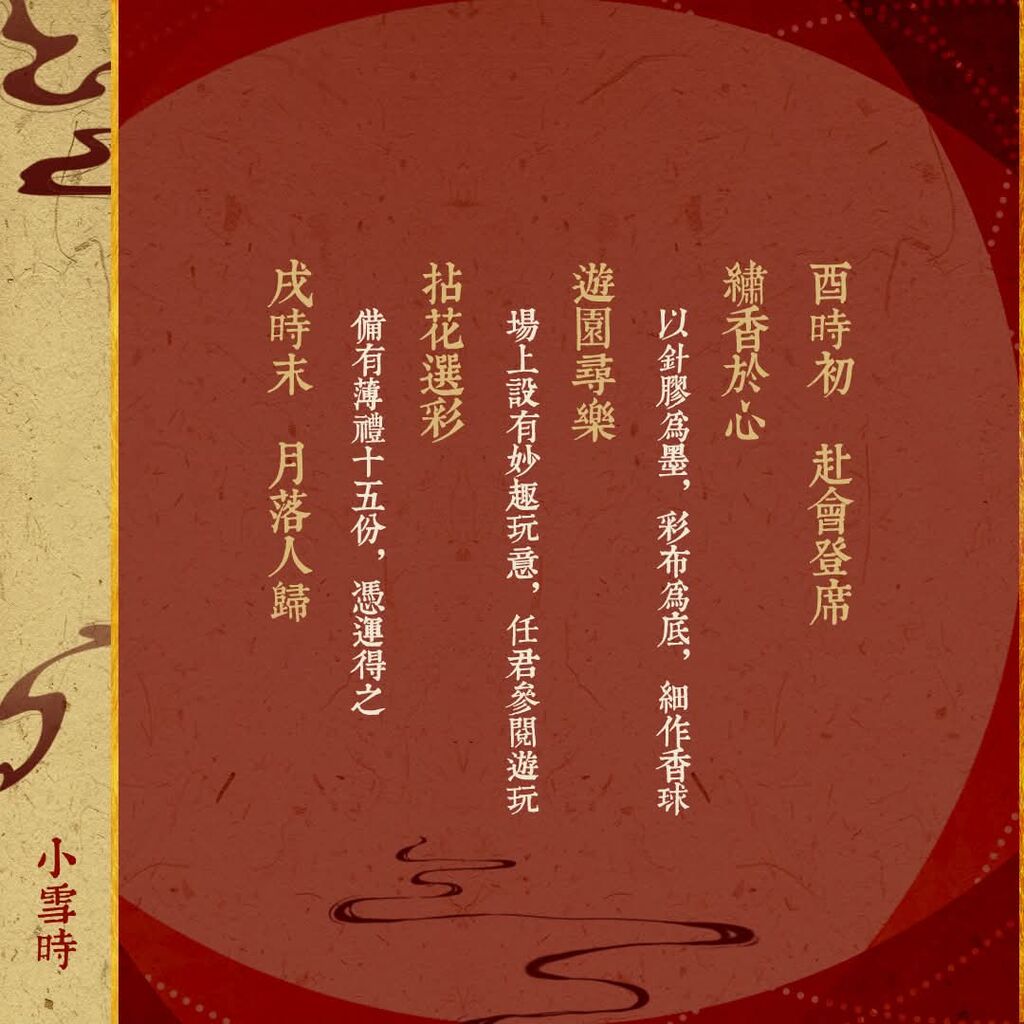 酉時初　赴會登席
繡香於心
以針膠爲墨，彩布爲底，細作香球
遊園尋樂
場上設有妙趣玩意，任君參閱遊玩
拈花選彩
備有薄禮十五份，憑運得之
戌時末　月落人歸
小雪時